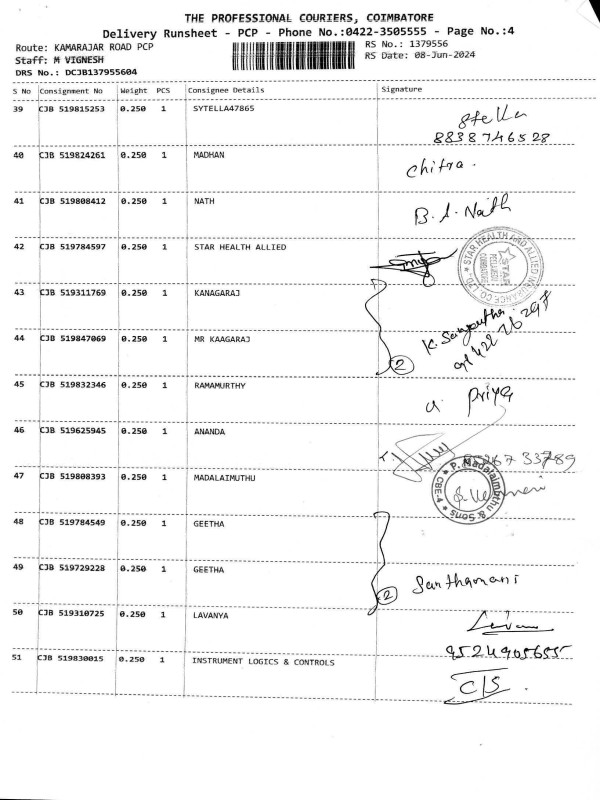 THE PROFESSIONAL COURIERS, COIMBATORE
Delivery Runsheet - PCP - Phone No.:0422-3505555 - Page No.:4
Route: KAMARAJAR ROAD PCP
RS No.: 1379556
Staff: M VIGNESH
RS Date: 08-Jun-2024
DRS No.: DCJB137955604
S No Consignment No Weight PCS Consignee Details Signature
39 CJB 519815253 0.250 1 SYTELLA47865 Stella
8838746528
40 CJB 519824261 0.250 1 MADHAN Chitra.
41 CJB 519808412 0.250 1 NATH B. A. Nath
42 CJB 519784597 0.250 1 STAR HEALTH ALLIED
STAR HEALTH AND ALLIED INSURANCE CO. LTD
STAR
43 CJB 519311769 0.250 1 KANAGARAJ
44 CJB 519847069 0.250 1 MR KAAGARAJ 2 K.
45 CJB 519832346 0.250 1 RAMAMURTHY a. Priya
46 CJB 519625945 0.250 1 ANANDA
33789
47 CJB 519808393 0.250 1 MADALAIMUTHU
P. Madalaimuthu & Sons CBE-4
48 CJB 519784549 0.250 1 GEETHA
49 CJB 519729228 0.250 1 GEETHA 2 Santhamani
50 CJB 519310725 0.250 1 LAVANYA
9524905655
51 CJB 519830015 0.250 1 INSTRUMENT LOGICS & CONTROLS